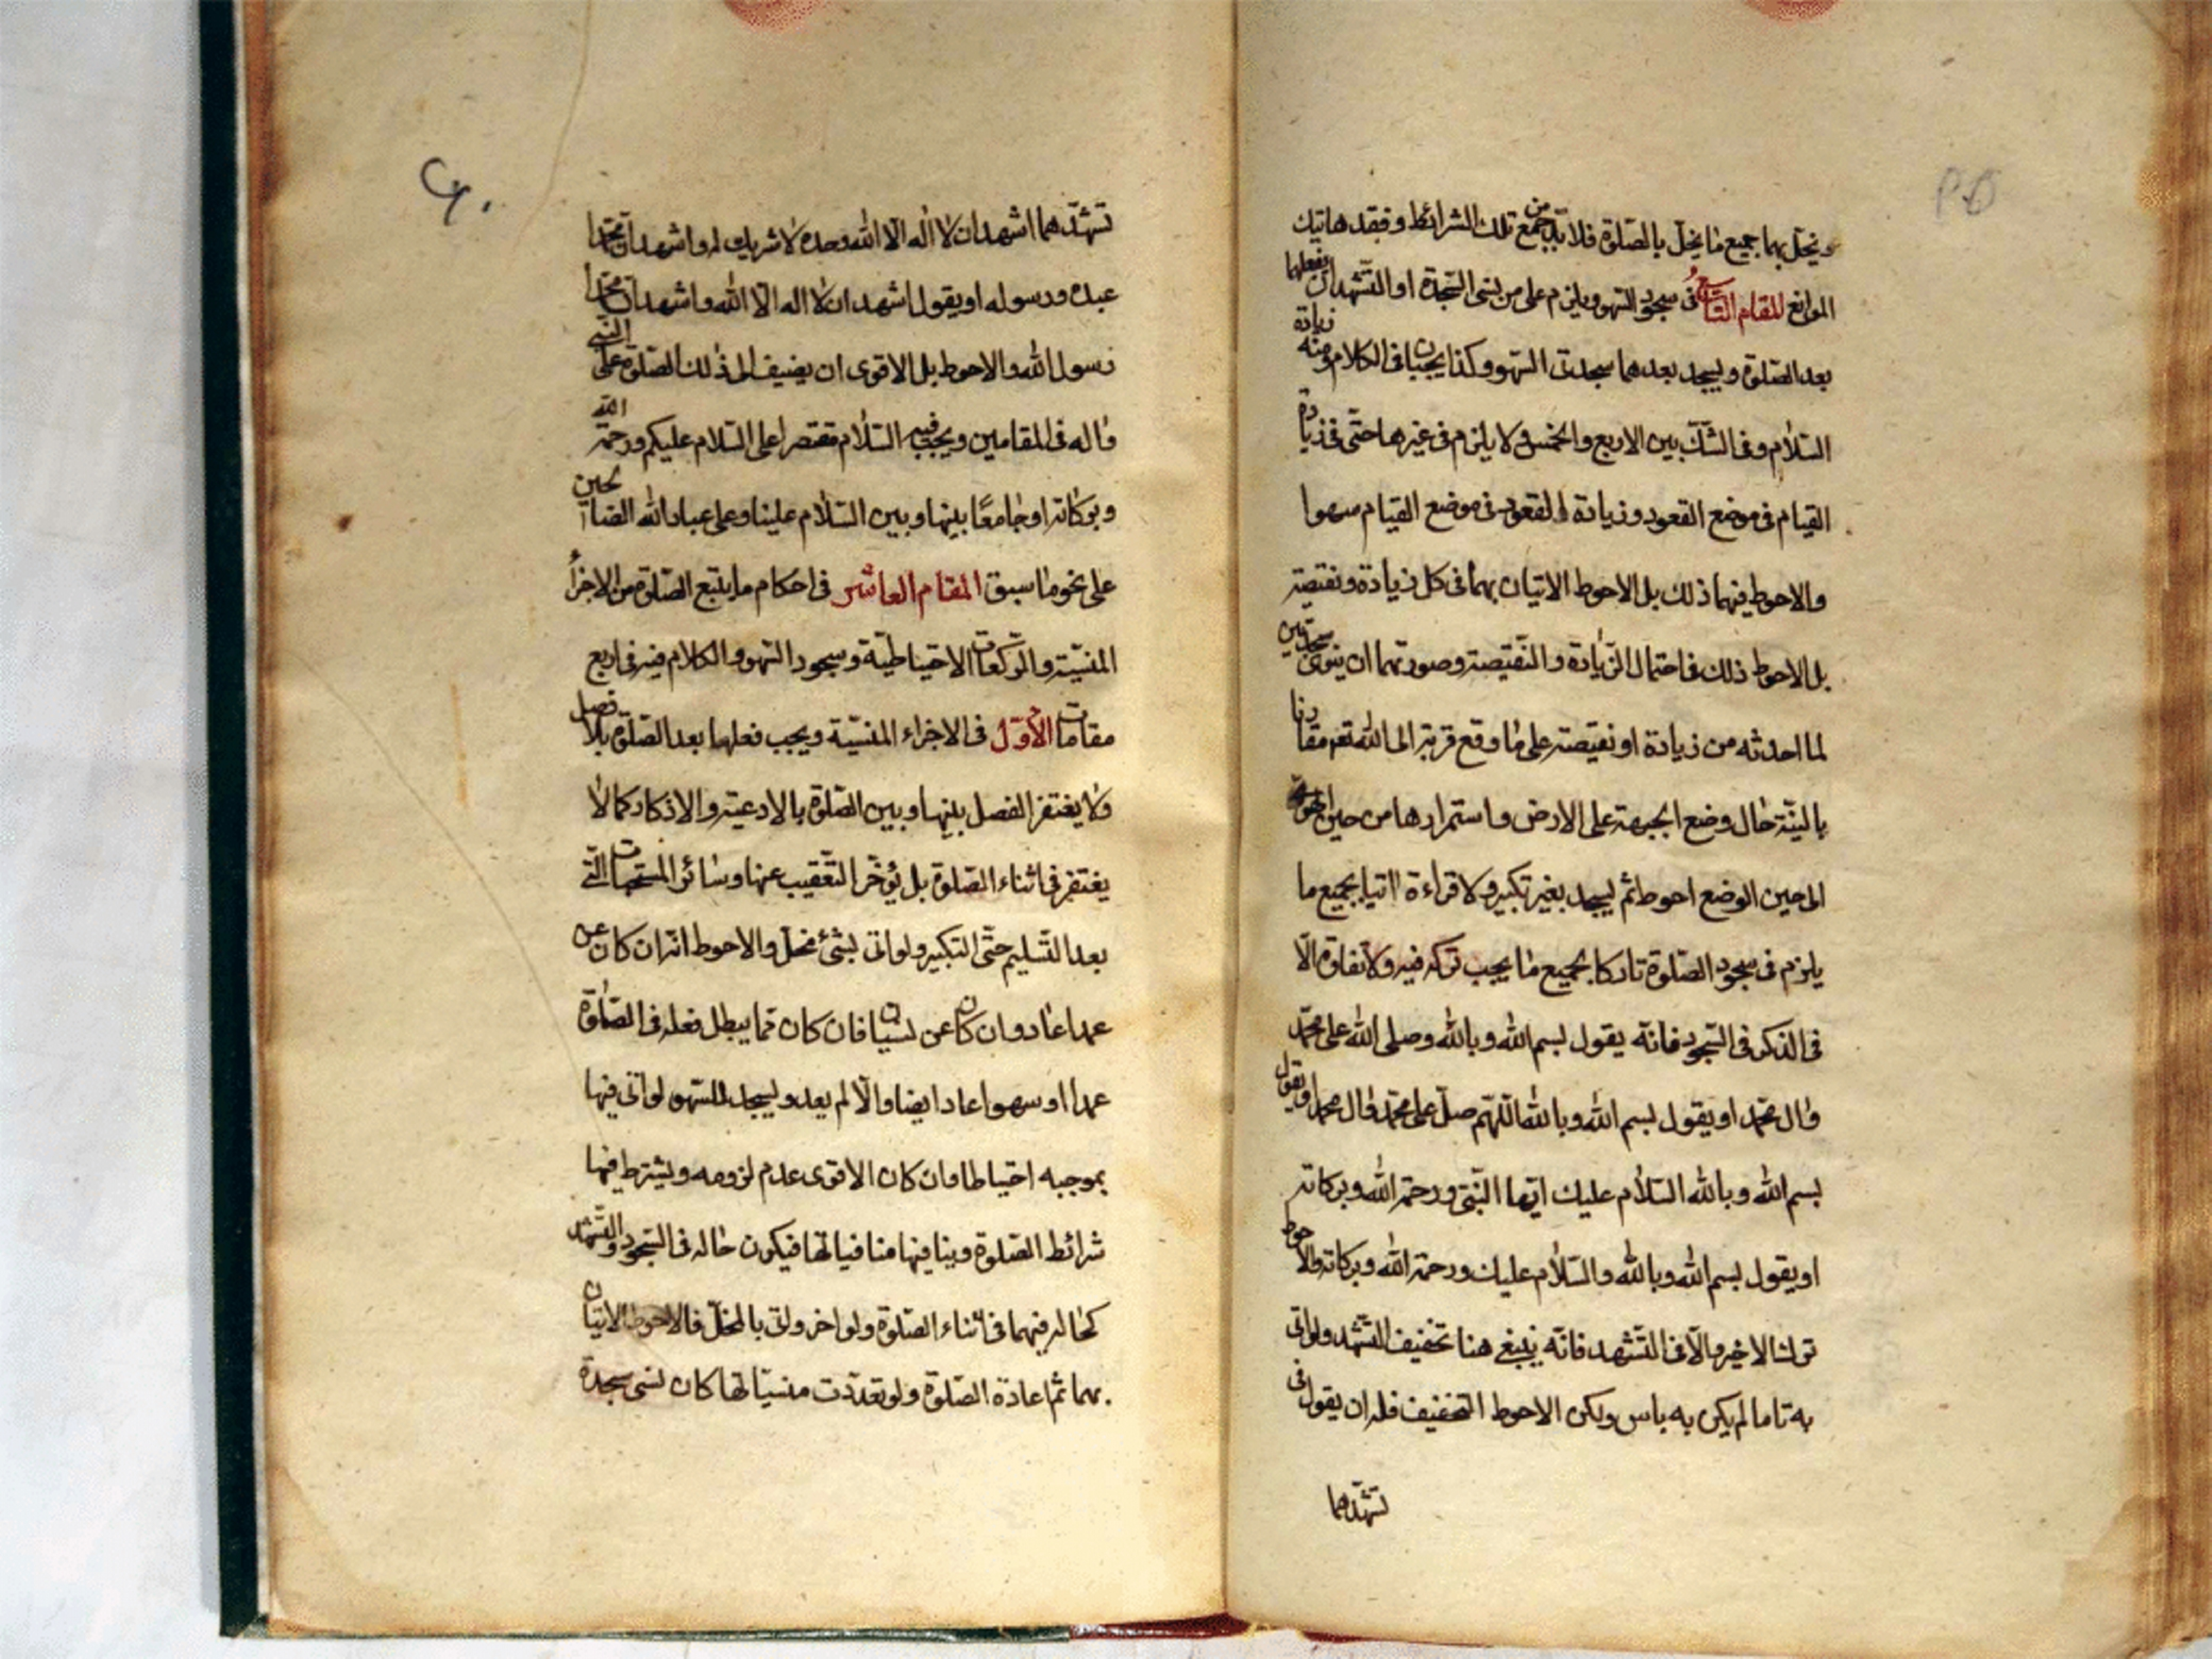 ويخلّ بهما جميع ما يخلّ بالصّلوة فلا بدّ من جمع تلك الشرائط وفقد هاتيك
الموانع المقام التّاسع في سجود السّهو ويلزم على من نسى السّجدة او التّشهد ان يفعلهما
بعد الصّلوة ويسجد بعدهما سجدتى السّهو وكذا يجبان فى الكلام ومنه زيادة
السّلام وفى الشّكّ بين الاربع والخمس ولا يلزم فى غيرها حتّى فى زيادة
القيام فى موضع القعود وزيادة القعود فى موضع القيام سهوا
والاحوط فيهما ذلك بل الاحوط الاتيان بهما فى كل زيادة ونقيصة
بل الاحوط ذلك فى احتمال الزّيادة والنّقيصة وصورتهما ان ينوى سجدتين
لما احدثه من زيادة او نقيصة على ما وقع قربة الى الله تعم مقارنا
بالنيّة حال وضع الجبهة على الارض واستمرارها من حين الهوىّ
الى حين الوضع احوط ثم يسجد بغير تكبير ولا قراءة اتيا بجميع ما
يلزم فى سجود الصّلوة تاركا بجميع ما يجب تركه فيه ولا تفاوت الّا
فى الذكر فى السّجود فانّه يقول بسم الله وبالله وصلى الله على محمّد
وال محمّد او يقول بسم الله وبالله اللّهمّ صلّ على محمّد وال محمد او يقول
بسم الله وبالله السّلام عليك ايّها النّبىّ ورحمة الله وبركاته
او يقول بسم الله وبالله والسّلام عليك ورحمة الله وبركاته والاحوط
ترك الاخير والّا فى التّشهد فانّه ينبغى هنا تخفيف التّشهّد ولو اتى
به تاما لم يكن به باس ولكن الاحوط التخفيف فله ان يقول فى
تشهّدهما
تشهّدهما اشهد ان لا اله الّا الله وحده لا شريك له واشهد انّ محمّدا
عبده ورسوله او يقول اشهد ان لا اله الّا الله واشهد انّ محمّدا
رسول الله والاحوط بل الاقوى ان يضيف الى ذلك الصّلوة على النّبى
واله فى المقامين ويجب فيه السّلام مقتصرا على السّلام عليكم ورحمة الله
وبركاته او جامعًا بينها وبين السّلام علينا وعلى عباد الله الصّالحين
على نحو ما سبق المقام العاشر فى احكام ما يتبع الصّلوة من الاجزاء
المنسيّة والرّكعات الاحتياطيّة وسجود السّهو والكلام فيه فى اربع
مقامات الأوّل فى الاجزاء المنسيّة ويجب فعلها بعد الصّلوة بلا فصل
ولا يغتفر الفصل بينها وبين الصّلوة بالادعية والاذكار كما لا
يغتفر فى اثناء الصّلوة بل يؤخّر التّعقيب عنها وسائر المستحبات الّتى
بعد التّسليم حتّى التكبير ولو اتى بشئ مخلّ والاحوط انّه ان كان عن
عمد اعاد وان كان عن نسيان فان كان ممّا يبطل فعله فى الصّلوة
عمدا او سهوا اعاد ايضا والّا لم يعد ويسجد للسّهو لو اتى فيها
بموجبه احتياطا وان كان الاقوى عدم لزومه ويشترط فيها
شرائط الصّلوة وينافيها منافياتها فيكون حاله فى السّجود والتّشهّد
كحاله فيهما فى اثناء الصّلوة ولو اخر واتى بالمخلّ فالاحوط الاتيان
بهما ثمّ اعادة الصّلوة ولو تعدّدت منسيّاتها كان نسى سجدة